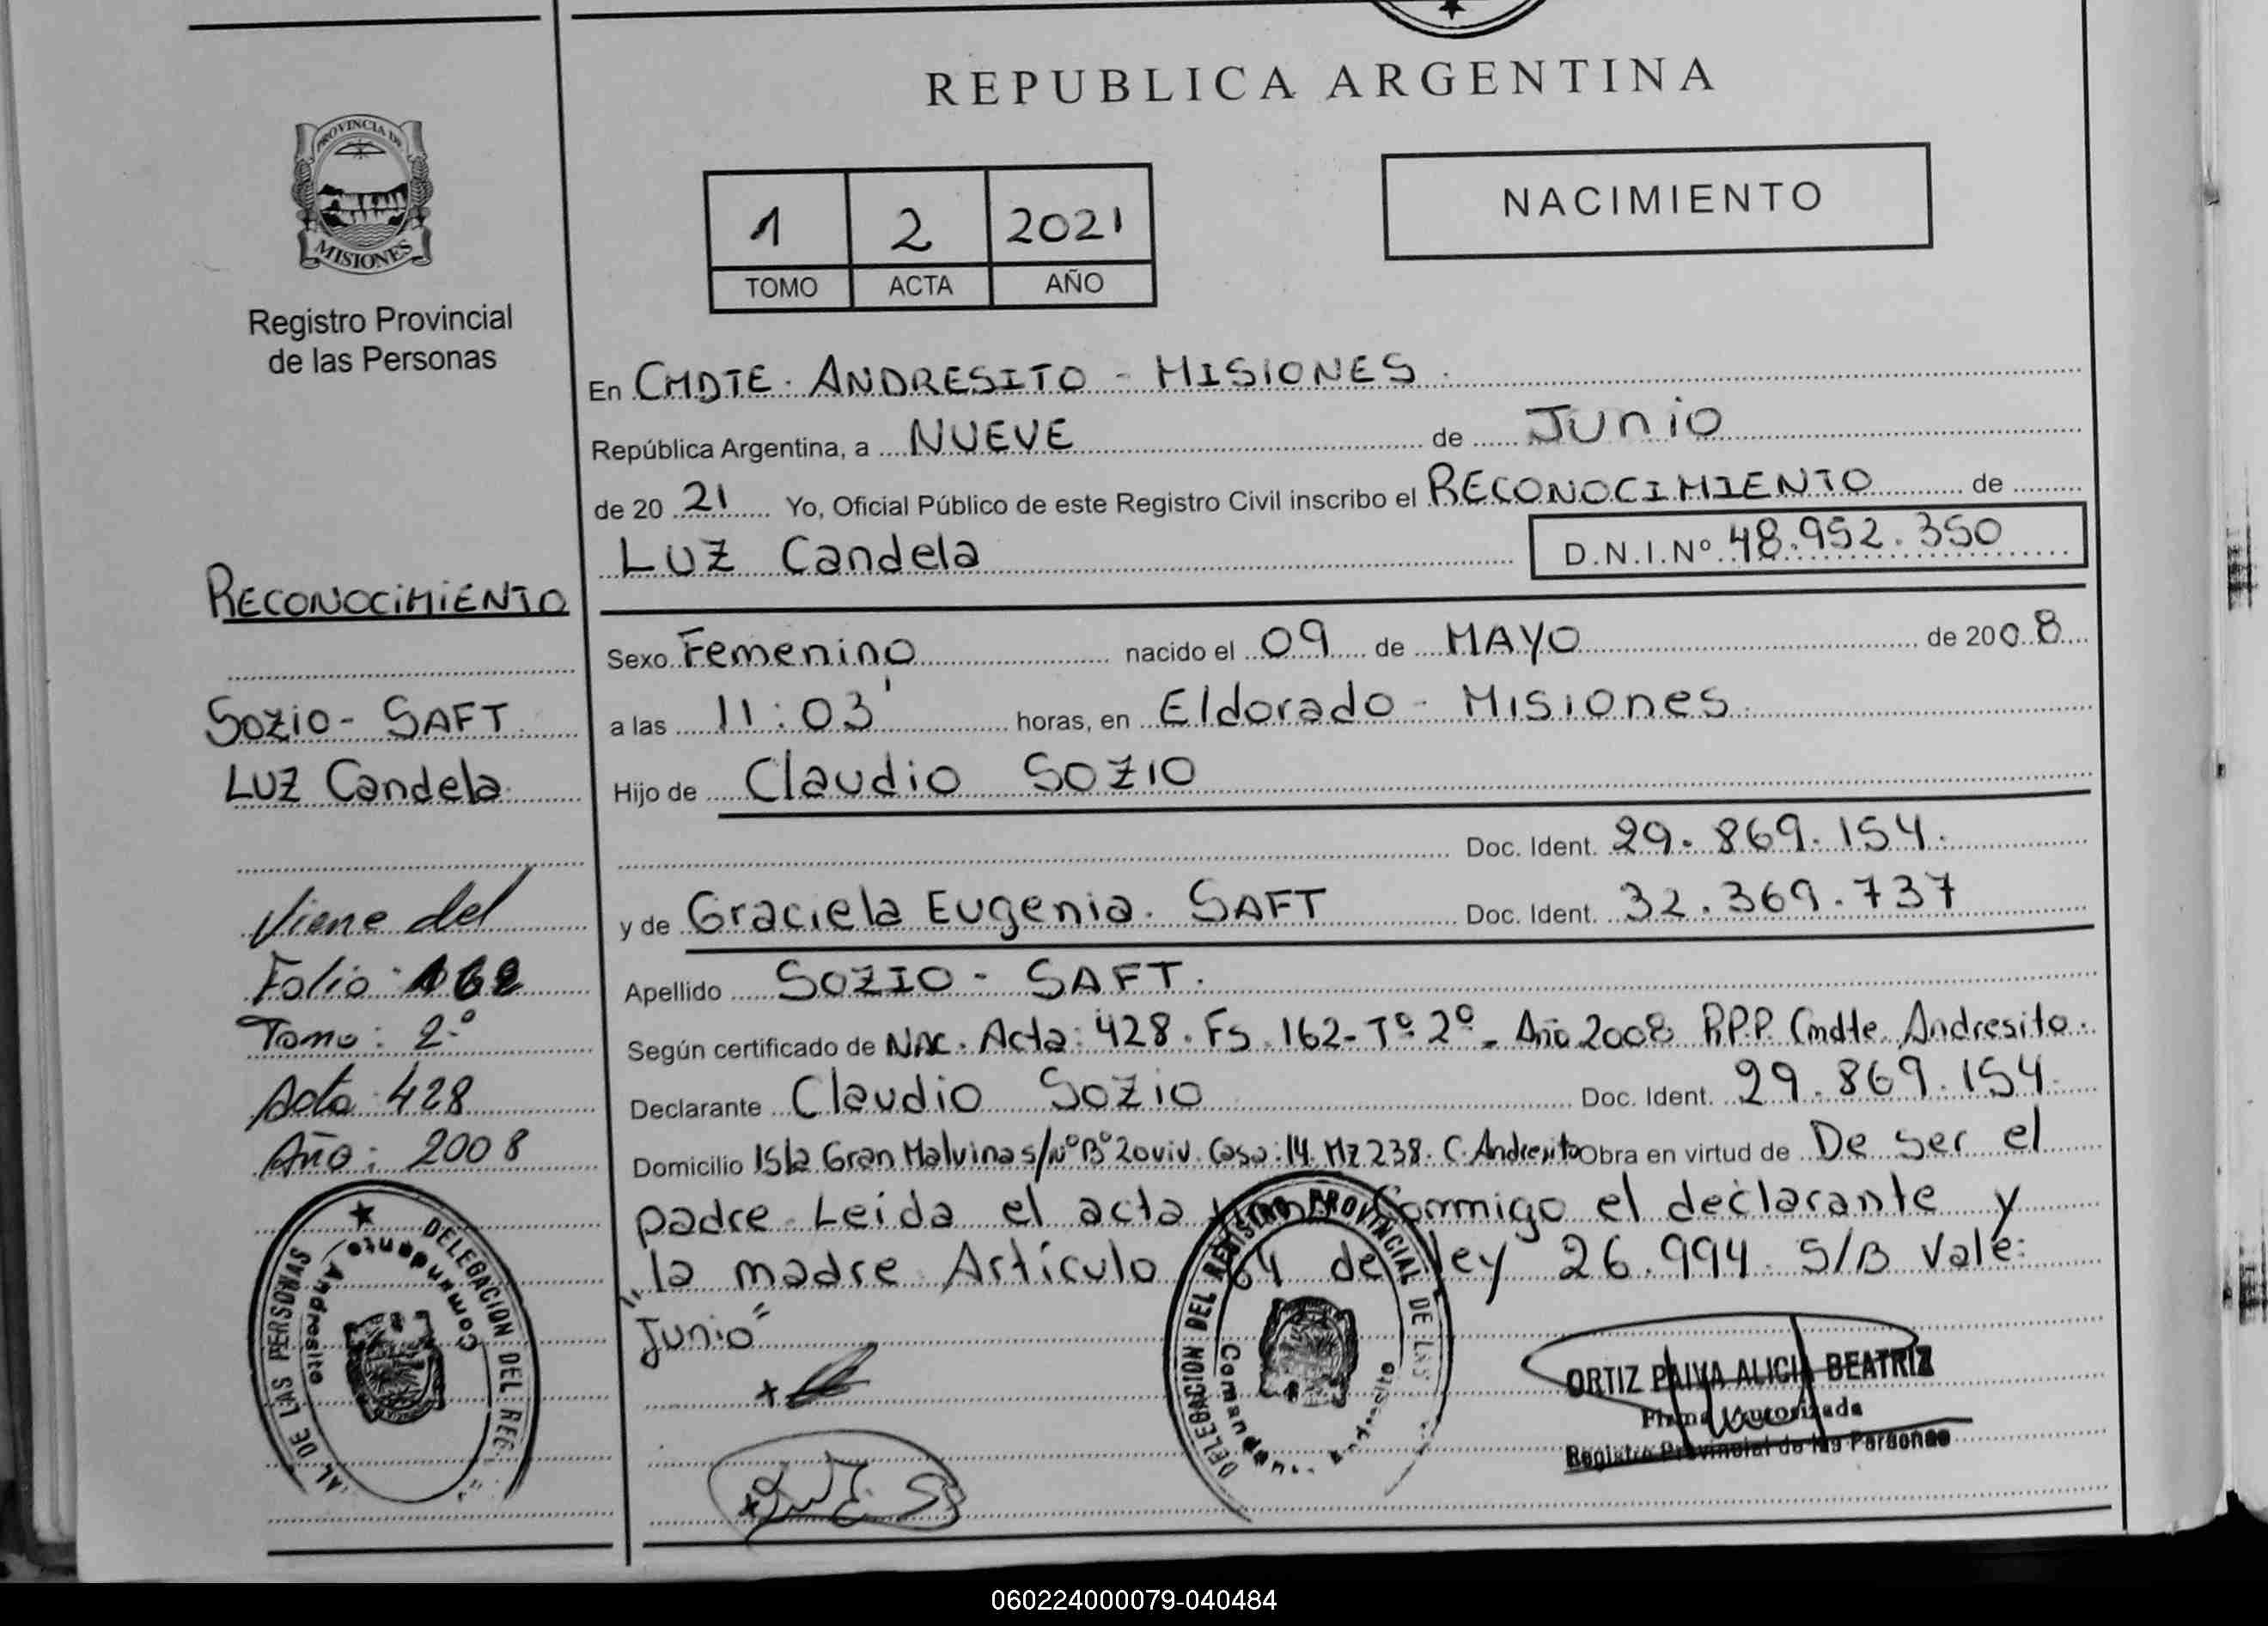 REPUBLICA ARGENTINA
PROVINCIA DE
MISIONES
Registro Provincial
de las Personas
1 2 2021
TOMO ACTA AÑO
NACIMIENTO
En CMDTE. ANDRESITO - MISIONES.
República Argentina, a NUEVE de Junio
de 20 21 Yo, Oficial Público de este Registro Civil inscribo el RECONOCIMIENTO de
LUZ Candela D.N.I.Nº 48.952.350
Sexo Femenino nacido el 09 de MAYO de 2008
a las 11:03' horas, en Eldorado - Misiones.
Hijo de Claudio SOZIO
Doc. Ident. 29.869.154.
y de Graciela Eugenia. SAFT Doc. Ident. 32.369.737
Apellido SOZIO - SAFT.
Según certificado de NAC. Acta: 428. Fs. 162- Tº 2º - Año 2008 R.P.P. Cmdte. Andresito.
Declarante Claudio Sozio Doc. Ident. 29.869.154.
Domicilio Isla Gran Malvina s/Nº Bº 20 viv. Casa: 14. Mz 238. C. Andresito Obra en virtud de De ser el
padre. Leida el acta Conmigo el declarante y
la madre. Artículo 64 de ley 26.994. S/B Vale:
"Junio"
RECONOCIMIENTO
Sozio - SAFT
LUZ Candela
Viene del
Folio: 162
Tomo: 2º
Acta 428
Año: 2008
DELEGACION DEL REG. AL DE LAS PERSONAS
Comandante Andresito
DELEGACION DEL REGISTRO PROVINCIAL DE LAS
Comandante Andresito
ORTIZ PAIVA ALICIA BEATRIZ
Firma Autorizada
Registro Provincial de las Personas
060224000079-040484